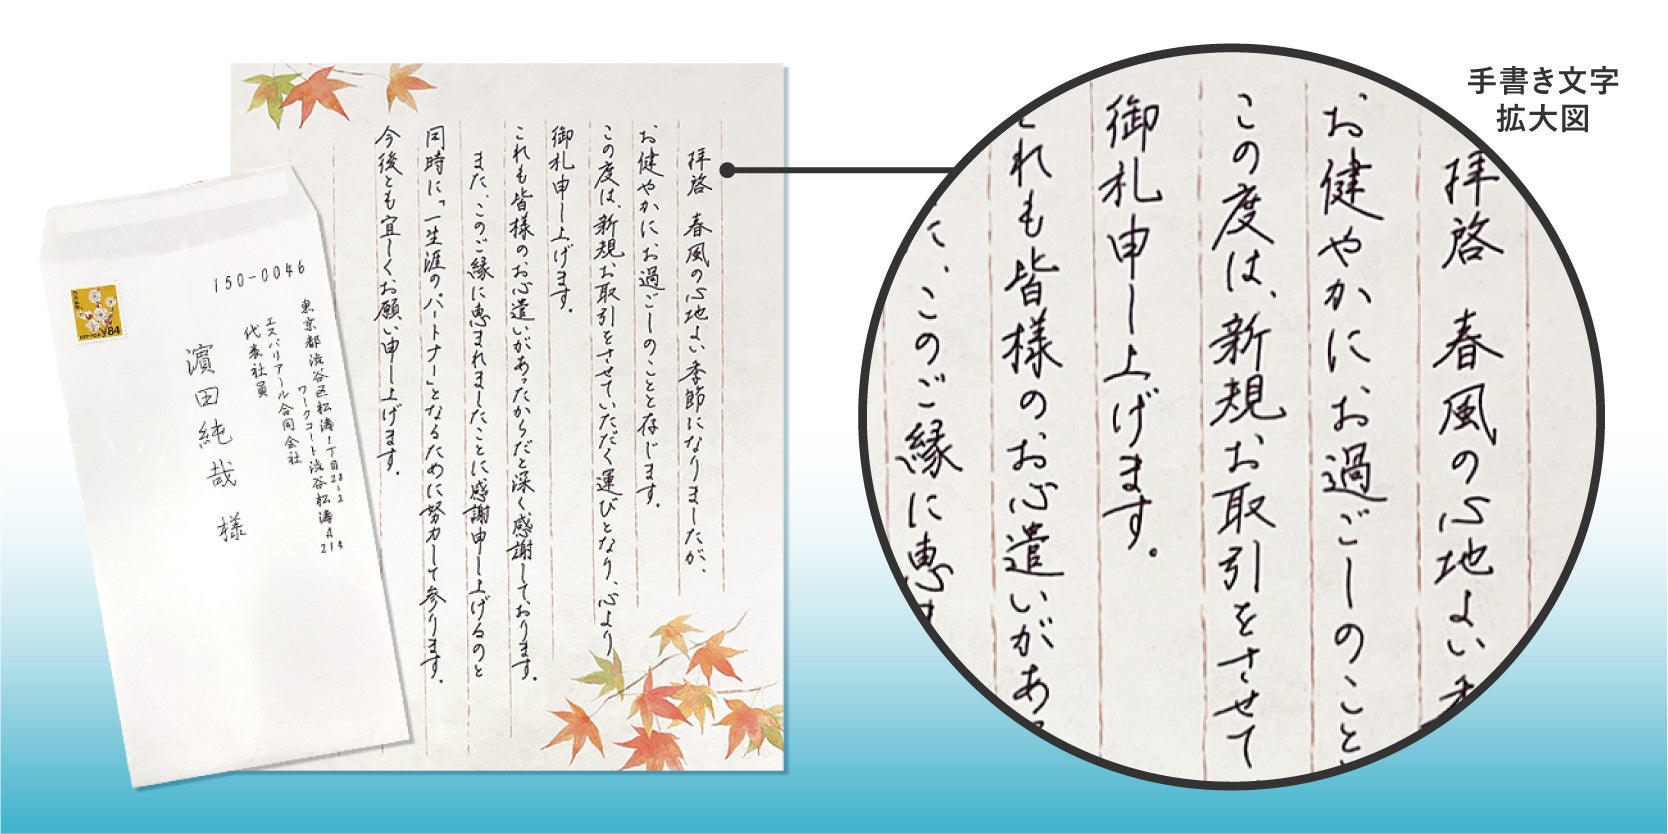 手書き文字
拡大図
拝啓 春風の心地よい季節になりましたが、
お健やかにお過ごしのことと存じます。
この度は、新規お取引をさせていただく運びとなり、心より
御札申し上げます。
これも皆様のお心遣いがあったからだと深く感謝しております。
また、このご縁に恵まれましたことに感謝申し上げるのと
同時に、「一生涯のパートナー」となるために努力して参ります。
今後とも宜しくお願い申し上げます。
150-0046
東京都渋谷区松濤1丁目28-2
ワークコート渋谷松濤A
214
エスパリアール合同会社
代表社員
濵田純哉 様
NIPPON ¥84
拝啓 春風の心地よい季
お健やかにお過ごしのこと
この度は、新規お取引をさせて
御札申し上げます。
これも皆様のお心遣いがある
た、このご縁に恵ま